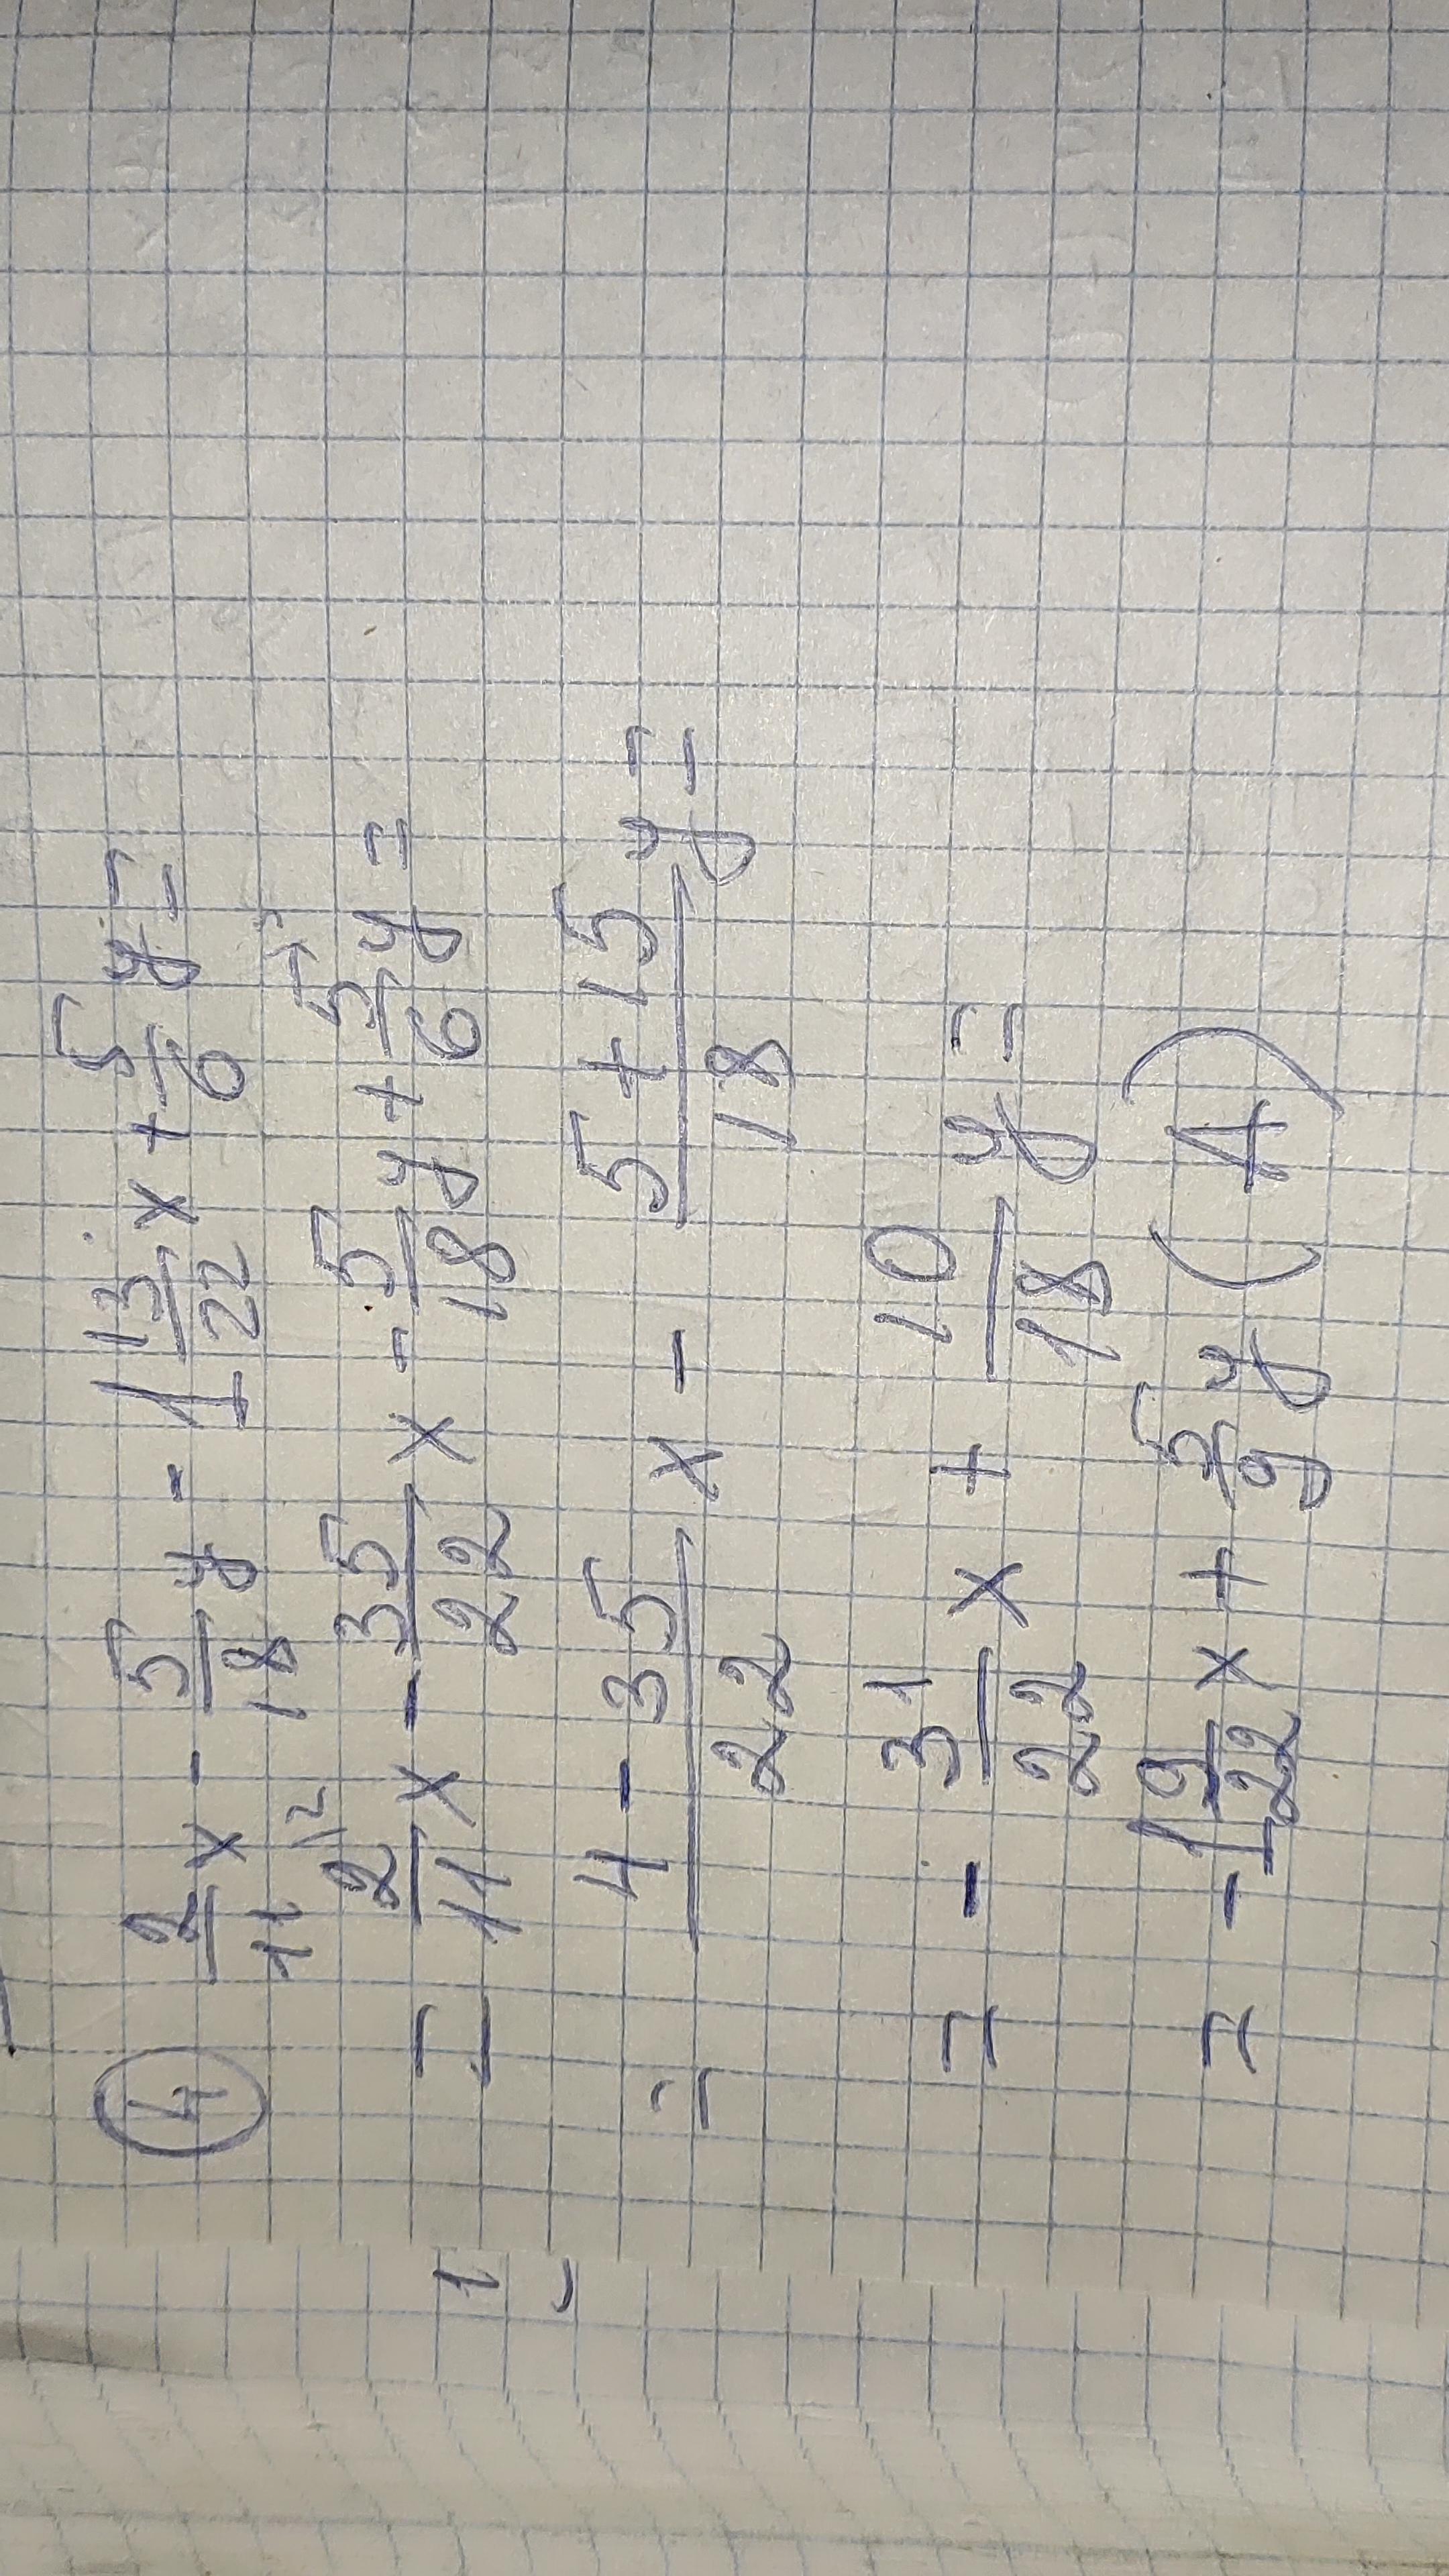 ④ 2/11 x - 5/18 y - 1 13/22 x + 5/6 y =
= 2/11 \2 x - 35/22 x - 5/18 y + 5/6 \3 y =
= (4 - 35)/22 x - (5 + 15)/18 y =
= - 31/22 x + 10/18 y =
= - 1 9/22 x + 5/9 y (4)